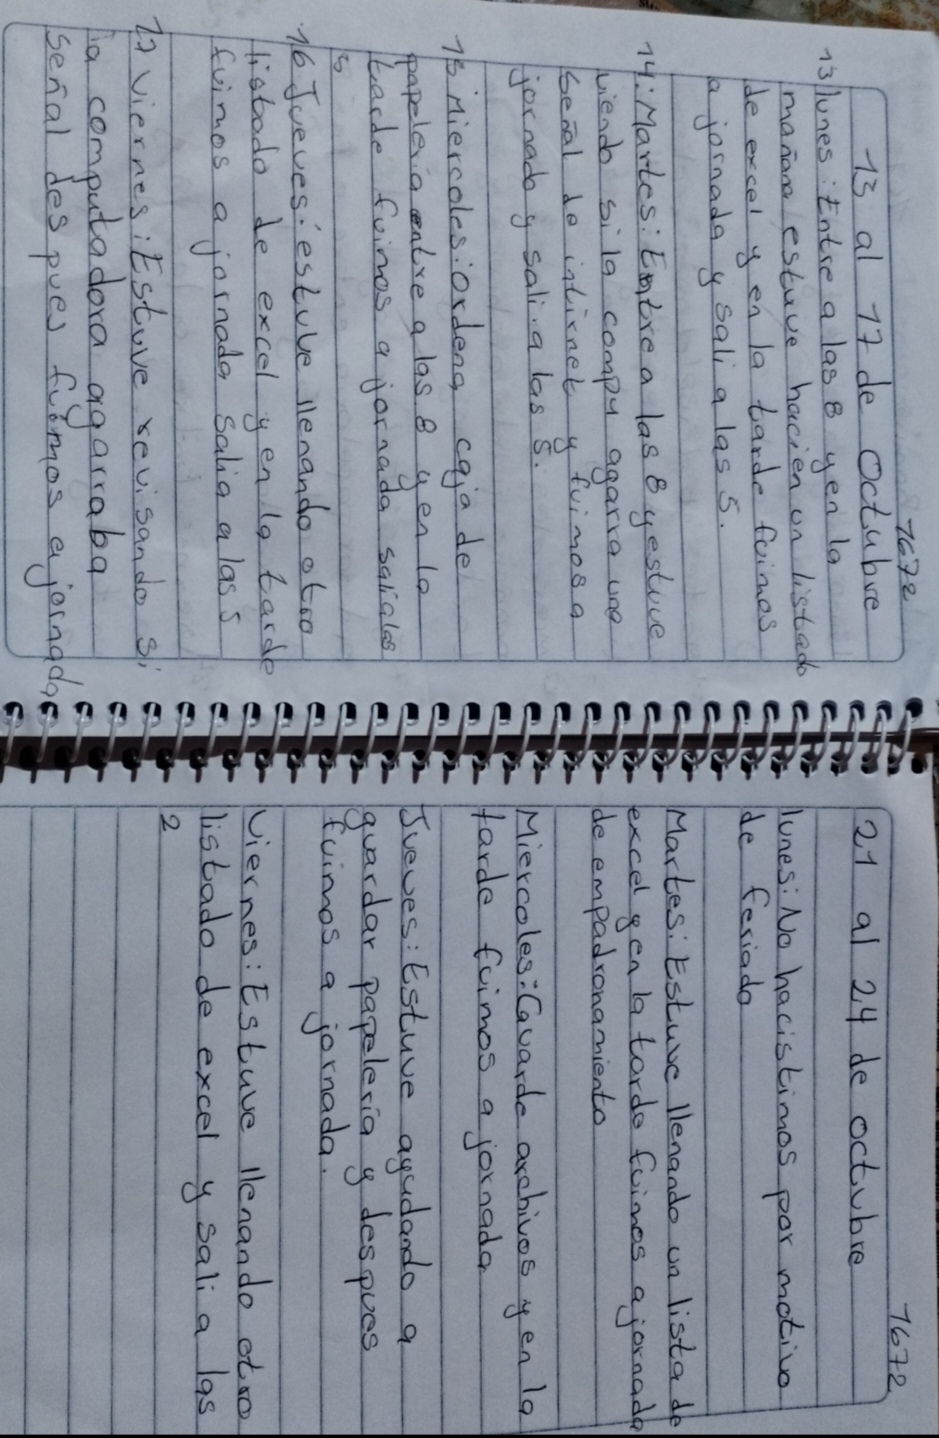 1672
13 al 17 de Octubre
13 lunes: Entre a las 8 y en la
mañana estuve hacien un listado
de excel y en la tarde fuimos
a jornada y sali a las 5.
14: Martes: Entre a las 8 y estuve
viendo si la compu agarra una
señal de intirnet y fuimos a
jornada y sali a las 5.
15 Miercoles: ordena caja de
papeleria entre a las 8 y en la
tarde fuimos a jornada salialas
5
16 Jueves: estube llenando otro
listado de excel y en la tarde
fuimos a jornada salia a las 5
17 Viernes: Estuve revisando si
la computadora agarraba
señal des pues fuimos a jornada
1672
21 al 24 de octubre
lunes: No hacistimos por motivo
de feriado
Martes: Estuve llenando un lista de
excel y en la tarde fuimos a jornada
de empadronamiento
Miercoles: Guarde archivos y en la
tarde fuimos a jornada
Jueves: Estuve ayudando a
guardar papelería y des pues
fuimos a jornada.
Viernes: Estuve llenando otro
listado de excel y sali a las
2